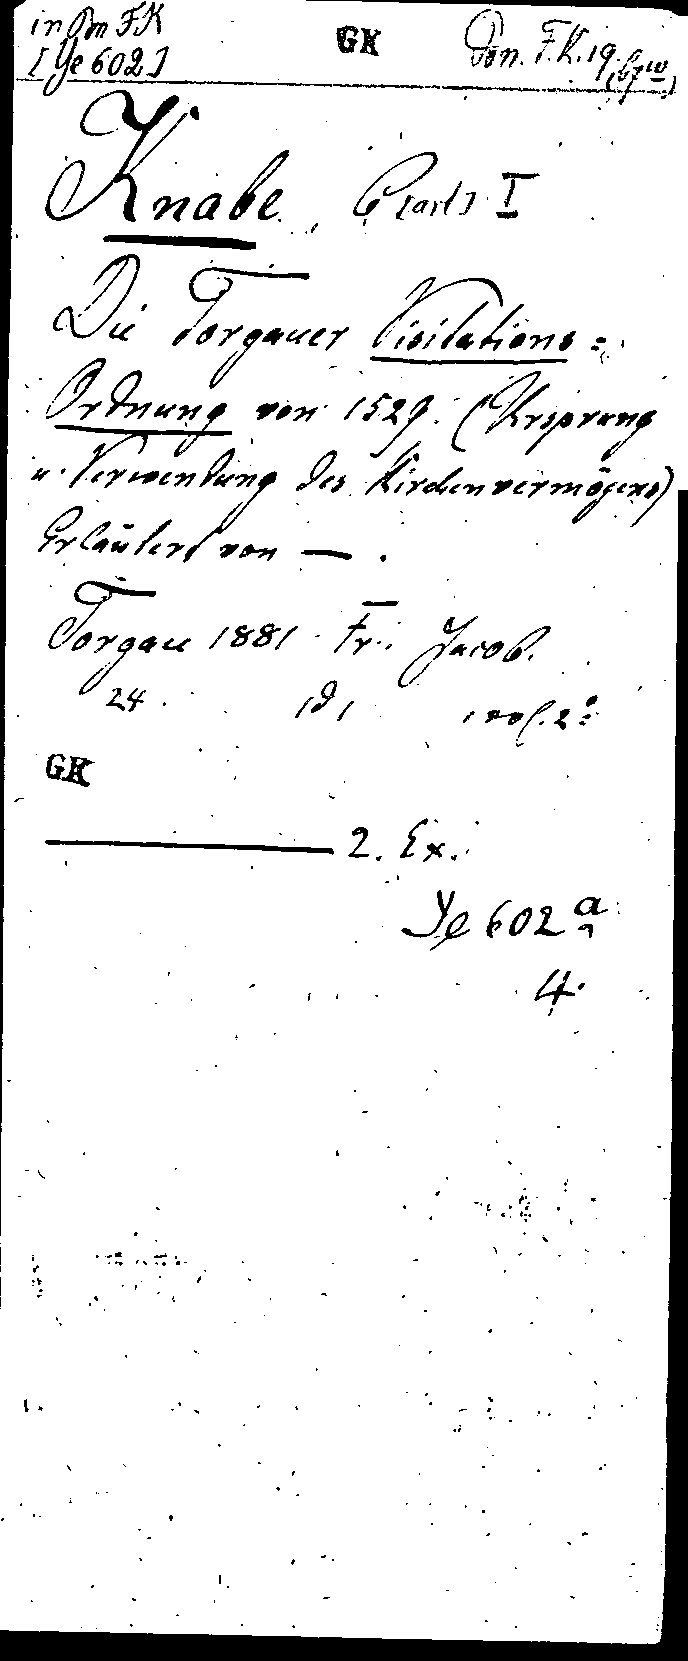 in Bm FK GK Don. F. K. 19.
[Ye 602] (67 10)
Knabe, C[arl] I
Die Torgauer Visitations-
Ordnung von 1529. (Ursprung
u. Verwendung des Kirchenvermögens)
Erläutert von — .
Torgau 1881. Fr. Jacob.
24 1 vol. 2°
GK
——— 2. Ex.
Ye 602 a
4.